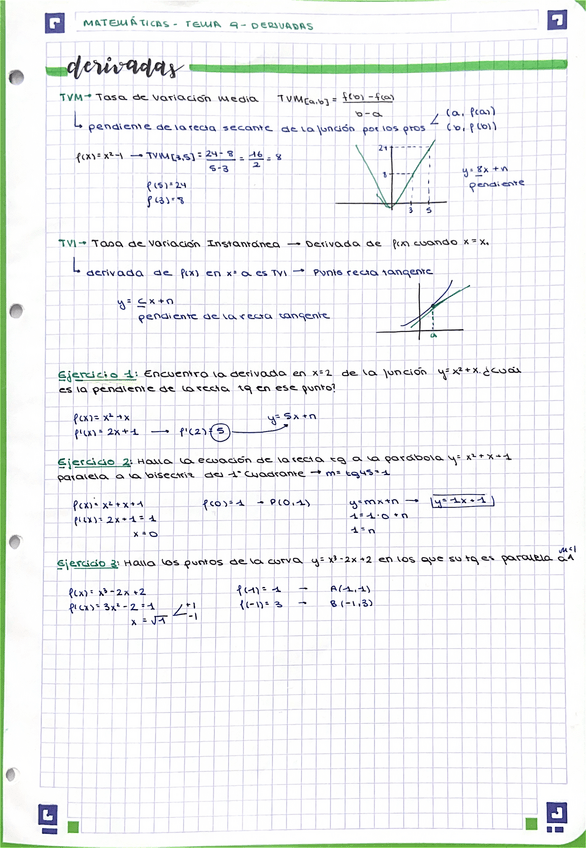 MATEMÁTICAS - TEMA 9 - DERIVADAS
derivadas
TVM → Tasa de variación media TVM[a,b] = f(b) - f(a) / b - a
↳ pendiente de la recta secante de la función por los ptos < (a, f(a)) (b, f(b))
f(x) = x² - 1 → TVM[3,5] = 24 - 8 / 5 - 3 = 16 / 2 = 8
f(5) = 24
f(3) = 8
24
8
3 5
y = 8x + n
pendiente
TVI → Tasa de Variación Instantánea → Derivada de f(x) cuando x = x₀
↳ derivada de f(x) en x = a es TVI → Punto recta tangente
y = c x + n
pendiente de la recta tangente
a
Ejercicio 1: Encuentra la derivada en x=2 de la función y = x² + x. ¿Cuál
es la pendiente de la recta tg en ese punto?
f(x) = x² + x
y = 5x + n
f'(x) = 2x + 1 → f'(2) = 5
Ejercicio 2: Halla la ecuación de la recta tg a la parábola y = x² + x + 1
paralela a la bisectriz del 1º cuadrante → m = tg 45 = 1
f(x) = x² + x + 1 f(0) = 1 → P(0,1) y = mx + n → y = 1x + 1
f'(x) = 2x + 1 = 1 1 = 1·0 + n
x = 0 1 = n
Ejercicio 3: Halla los puntos de la curva y = x³ - 2x + 2 en los que su tg es paralela a 1
m=1
f(x) = x³ - 2x + 2 f(-1) = 1 → A(1,1)
f'(x) = 3x² - 2 = 1 f(-1) = 3 → B(-1,3)
x = √1 < +1 -1